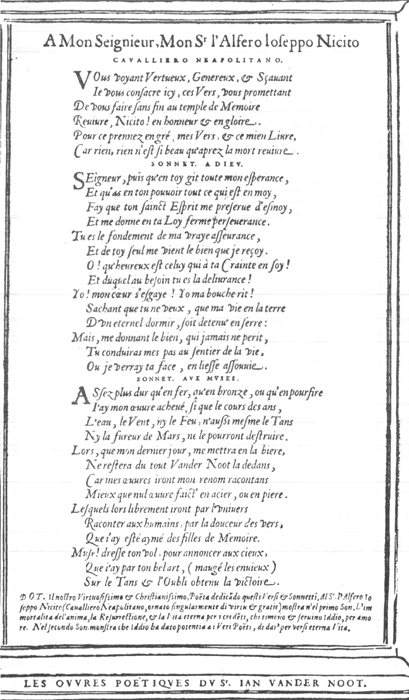 A Mon Seignieur, Mon Sr l'Alfero Ioseppo Nicito
CAVALLIERO NEAPOLITANO.
VOus voyant Vertueux, Genereux, & Sçauant
Ie vous consacre icy, ces Vers, vous promettant
De vous faire sans fin au temple de Memoire
Reuiure, Nicito! en honneur & en gloire.
Pour ce prennez en gré, mes Vers, & ce mien Liure,
Car rien, rien n'est si beau qu'aprez la mort reuiure.
SONNET. A DIEV.
SEigneur, puis qu'en toy git toute mon esperance,
Et qu'as en ton pouuoir tout ce qui est en moy,
Fay que ton sainct Esprit me preserue d'esmoy,
Et me donne en ta Loy ferme perseuerance.
Tu es le fondement de ma vraye asseurance,
Et de toy seul me vient le bien que je reçoy.
O! qu'heureux est celuy qui à ta Crainte en soy!
Et duquel au besoin tu es la deliurance!
Yo! mon cœur s'esgaye! Yo ma bouche rit!
Sachant que tu ne veux, que ma vie en la terre
D'vn eternel dormir, soit detenue en serre:
Mais, me donnant le bien, qui jamais ne perit,
Tu conduiras mes pas au sentier de la vie,
Ou je verray ta face, en liesse assouuie.
SONNET. AUX MUSES.
ASsez plus dur qu'en fer, qu'en bronze, ou qu'en pourfire
I'ay mon œuure acheué, si que le cours des ans,
L'eau, le Vent, ny le Feu, n'aussi mesme le Tans
Ny la fureur de Mars, ne le pourront destruire.
Lors, que mon dernier jour, me mettra en la biere,
Ne restera du tout Vander Noot la dedans,
Car mes œuures iront mon renom racontans
Mieux que nul œuure faict en acier, ou en piere.
Lesquels lors librement iront par l'vniuers
Raconter aux humains, par la douceur des vers,
Que i'ay esté aymé des filles de Memoire.
Muse! dresse ton vol, pour annoncer aux cieux,
Que i'ay par ton bel art, (maugé les enuieux)
Sur le Tans & l'Oubli obtenu la victoire.
DOT. Il nostro Virtuosissimo & Christianissimo, Poëta dedicādo questi Versi & Sonnetti, Al S. D'Alfero Io
seppo Nicito Cavalliero Neapolitano, ornato singularmente di virtu & gratie) mostra n'el primo Son. L'im
mortalita del'anima, la Resurrectione, & la Vita eterna per credēti, che timeno & seruino Iddio, per amo
re. Nel secondo Son. monstra che Iddio ha dato potentia a i Veri Poëti, di dar per versi eterna Vita.
LES OVVRES POËTIQVES DV Sr. IAN VANDER NOOT.